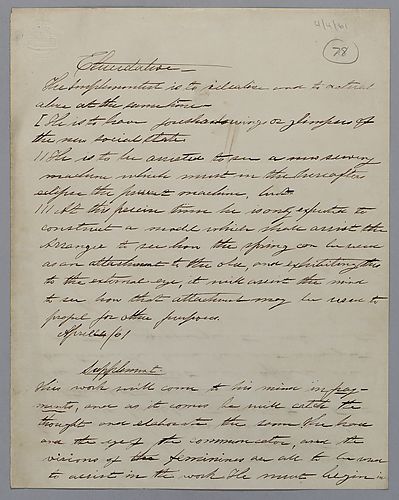 4/4/61
78
Elucidative
The Implementist is to idealise and to actual
alise at the same time
I He is to have foreshadowings or glimpses of
the new social state
II He is to be assisted to see a new sewing
machine which must in the hereafter
eclipse the present machine, but
III At this precise time he is only expected to
construct a model which shall assist the
Arranger to see how the spring can be used
as an attachment to the old, and exhibiting this
to the external eye, it will assist the mind
to see how that attachment may be used to
propel for other purposes.
April 4/61
Supplement
This work will come to his mind in frag-
ments, and as it comes he will catch the
thought and elaborate the same The hand
and the eye of the communicator, and the
visions of the feminines are all to be used
to assist in the work He must begin in